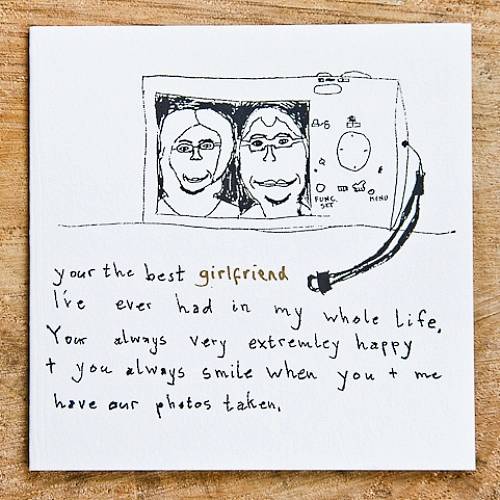 FUNC. SET
MENU
your the best girlfriend
I've ever had in my whole life.
Your always very extremley happy
+ you always smile when you + me
have our photos taken.